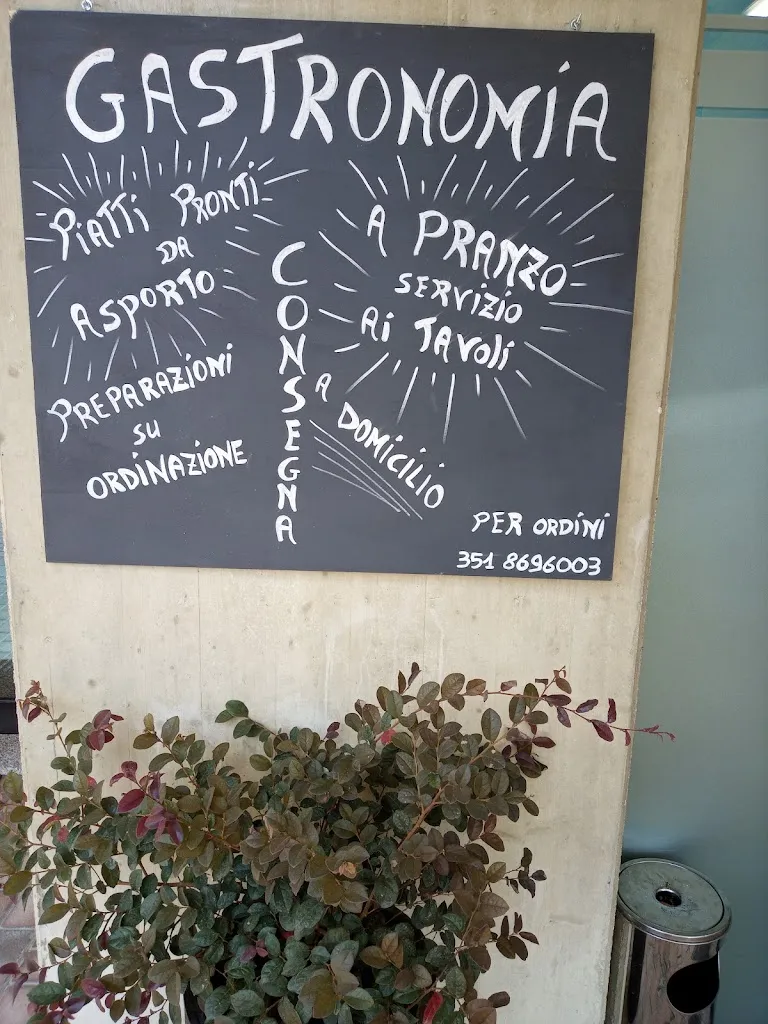 GASTRONOMIA
PIATTI PRONTI
DA
ASPORTO
PREPARAZIONI
SU
ORDINAZIONE
CONSEGNA
A
DOMICILIO
A PRANZO
SERVIZIO
AI TAVOLI
PER ORDINI
351 8696003